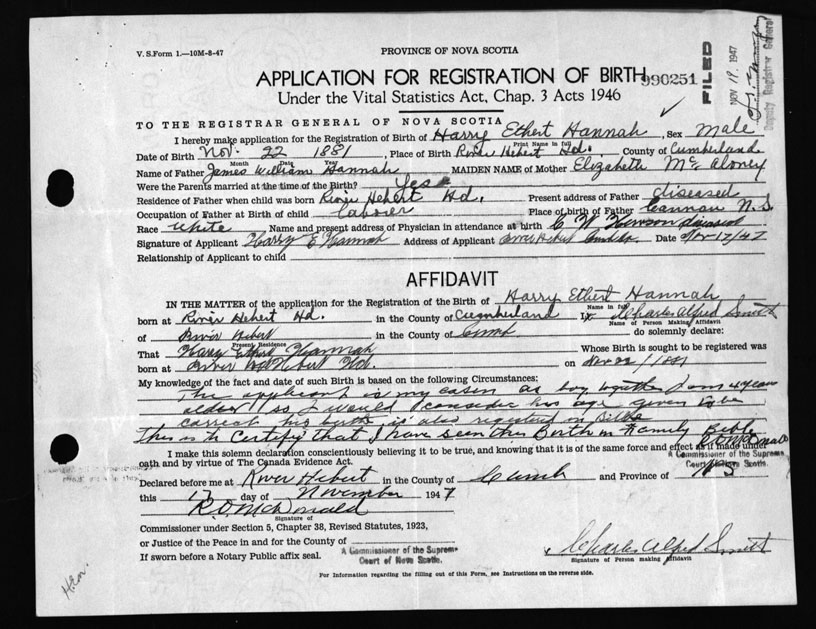 V. S. Form 1.—10M-8-47
PROVINCE OF NOVA SCOTIA
APPLICATION FOR REGISTRATION OF BIRTH 990251
Under the Vital Statistics Act, Chap. 3 Acts 1946
FILED
NOV 19 1947
Deputy Registrar General
TO THE REGISTRAR GENERAL OF NOVA SCOTIA
I hereby make application for the Registration of Birth of Harry Ethert Hannah, Sex Male
Print Name in full
Date of Birth Nov. 22 1881, Place of Birth River Hebert Hd. County of Cumberland
Month Date Year
Name of Father James William Hannah MAIDEN NAME of Mother Elizabeth McAloney
Were the Parents married at the time of the Birth? Yes
Residence of Father when child was born River Hebert Hd. Present address of Father diseased
Occupation of Father at Birth of child Laborer Place of birth of Father Cannan N.S.
Race White Name and present address of Physician in attendance at birth C W diseased
Signature of Applicant Harry E Hannah Address of Applicant River Hebert Date Nov-17/47
Relationship of Applicant to child
AFFIDAVIT
IN THE MATTER of the application for the Registration of the Birth of Harry Ethert Hannah
Name in full
born at River Hebert Hd. in the County of Cumberland I, Charles Alfred Smith
Name of Person Making Affidavit
of River Hebert in the County of Cumb do solemnly declare:
Present Residence
That Harry Ethert Hannah Whose Birth is sought to be registered was
born at River Hebert Hd. on Nov 22/1881
My knowledge of the fact and date of such Birth is based on the following Circumstances:
The applicant is my as boy together I am 4 years
older so I would consider his age given to be
correct his birth is also registered in Bible
This is to Certify that I have seen this Birth in Family Bible
I make this solemn declaration conscientiously believing it to be true, and knowing that it is of the same force and effect as if made under
oath and by virtue of The Canada Evidence Act.
A Commissioner of the Supreme
Court of Nova Scotia.
Declared before me at River Hebert in the County of Cumb and Province of N S
this 17 day of November 1947
R.O. McDonald
Signature of
Commissioner under Section 5, Chapter 38, Revised Statutes, 1923,
or Justice of the Peace in and for the County of
A Commissioner of the Supreme
Court of Nova Scotia.
If sworn before a Notary Public affix seal.
Charles Alfred Smith
Signature of Person making Affidavit
For Information regarding the filling out of this Form, see Instructions on the reverse side.